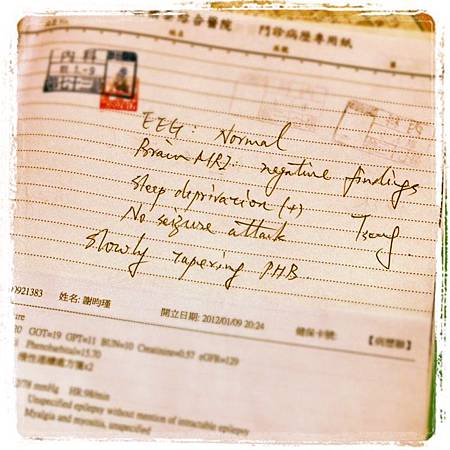 綜合醫院 門診病歷專用紙
內科
EEG: Normal
Brain MRI: negative findings
Sleep deprivation (+)
No seizure attack
Slowly tapering PHB
0921383 姓名: 謝昀瑾 開立日期: 2012/01/09 20:24 健保卡號: 【病歷聯】
GOT=19 GPT=11 BUN=10 Creatinine=0.57 eGFR=129
Phenobarbital=15.70
慢性連續處方箋x2
mmHg HR:98/min
Unspecified epilepsy without mention of intractable epilepsy
Myalgia and myositis, unspecified